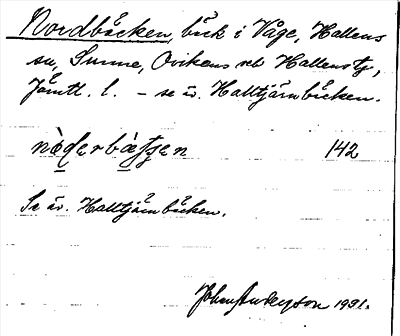 Nordbäcken, bäck i Våge, Hallens
sn, Sunne, Ovikens och Hallens tg,
Jämtl. l. – se äv. Halltjärnbäcken.
142
Se äv. Halltjärnbäcken.
John Anderson 1931.